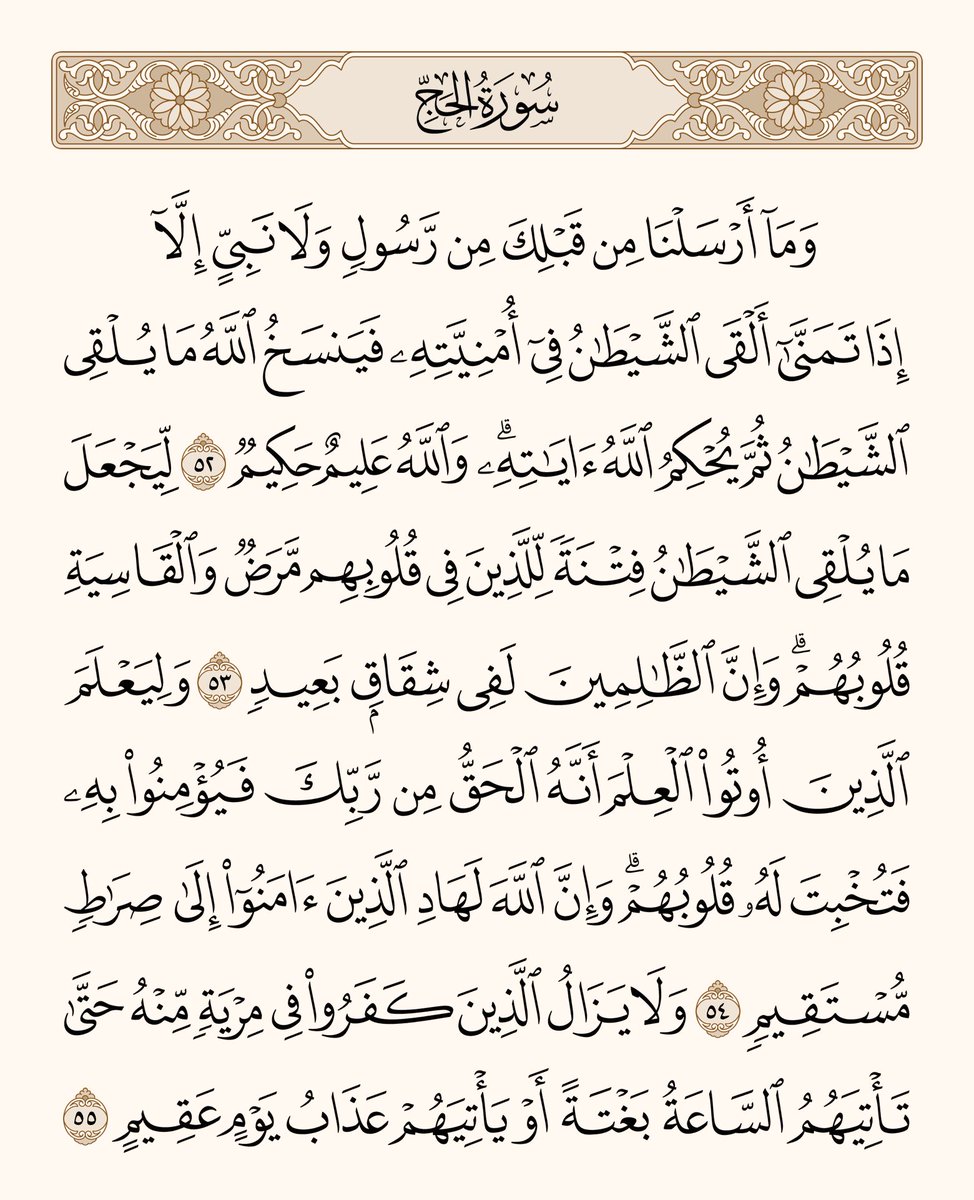 سُورَةُ الحَجِّ
وَمَآ أَرۡسَلۡنَا مِن قَبۡلِكَ مِن رَّسُولٖ وَلَا نَبِيٍّ إِلَّآ
إِذَا تَمَنَّىٰٓ أَلۡقَى ٱلشَّيۡطَٰنُ فِيٓ أُمۡنِيَّتِهِۦ فَيَنسَخُ ٱللَّهُ مَا يُلۡقِي
ٱلشَّيۡطَٰنُ ثُمَّ يُحۡكِمُ ٱللَّهُ ءَايَٰتِهِۦۗ وَٱللَّهُ عَلِيمٌ حَكِيمٞ ٥٢ لِّيَجۡعَلَ
مَا يُلۡقِي ٱلشَّيۡطَٰنُ فِتۡنَةٗ لِّلَّذِينَ فِي قُلُوبِهِم مَّرَضٞ وَٱلۡقَاسِيَةِ
قُلُوبُهُمۡۗ وَإِنَّ ٱلظَّٰلِمِينَ لَفِي شِقَاقِۭ بَعِيدٖ ٥٣ وَلِيَعۡلَمَ
ٱلَّذِينَ أُوتُواْ ٱلۡعِلۡمَ أَنَّهُ ٱلۡحَقُّ مِن رَّبِّكَ فَيُؤۡمِنُواْ بِهِۦ
فَتُخۡبِتَ لَهُۥ قُلُوبُهُمۡۗ وَإِنَّ ٱللَّهَ لَهَادِ ٱلَّذِينَ ءَامَنُوٓاْ إِلَىٰ صِرَٰطٖ
مُّسۡتَقِيمٖ ٥٤ وَلَا يَزَالُ ٱلَّذِينَ كَفَرُواْ فِي مِرۡيَةٖ مِّنۡهُ حَتَّىٰ
تَأۡتِيَهُمُ ٱلسَّاعَةُ بَغۡتَةً أَوۡ يَأۡتِيَهُمۡ عَذَابُ يَوۡمٍ عَقِيمٍ ٥٥